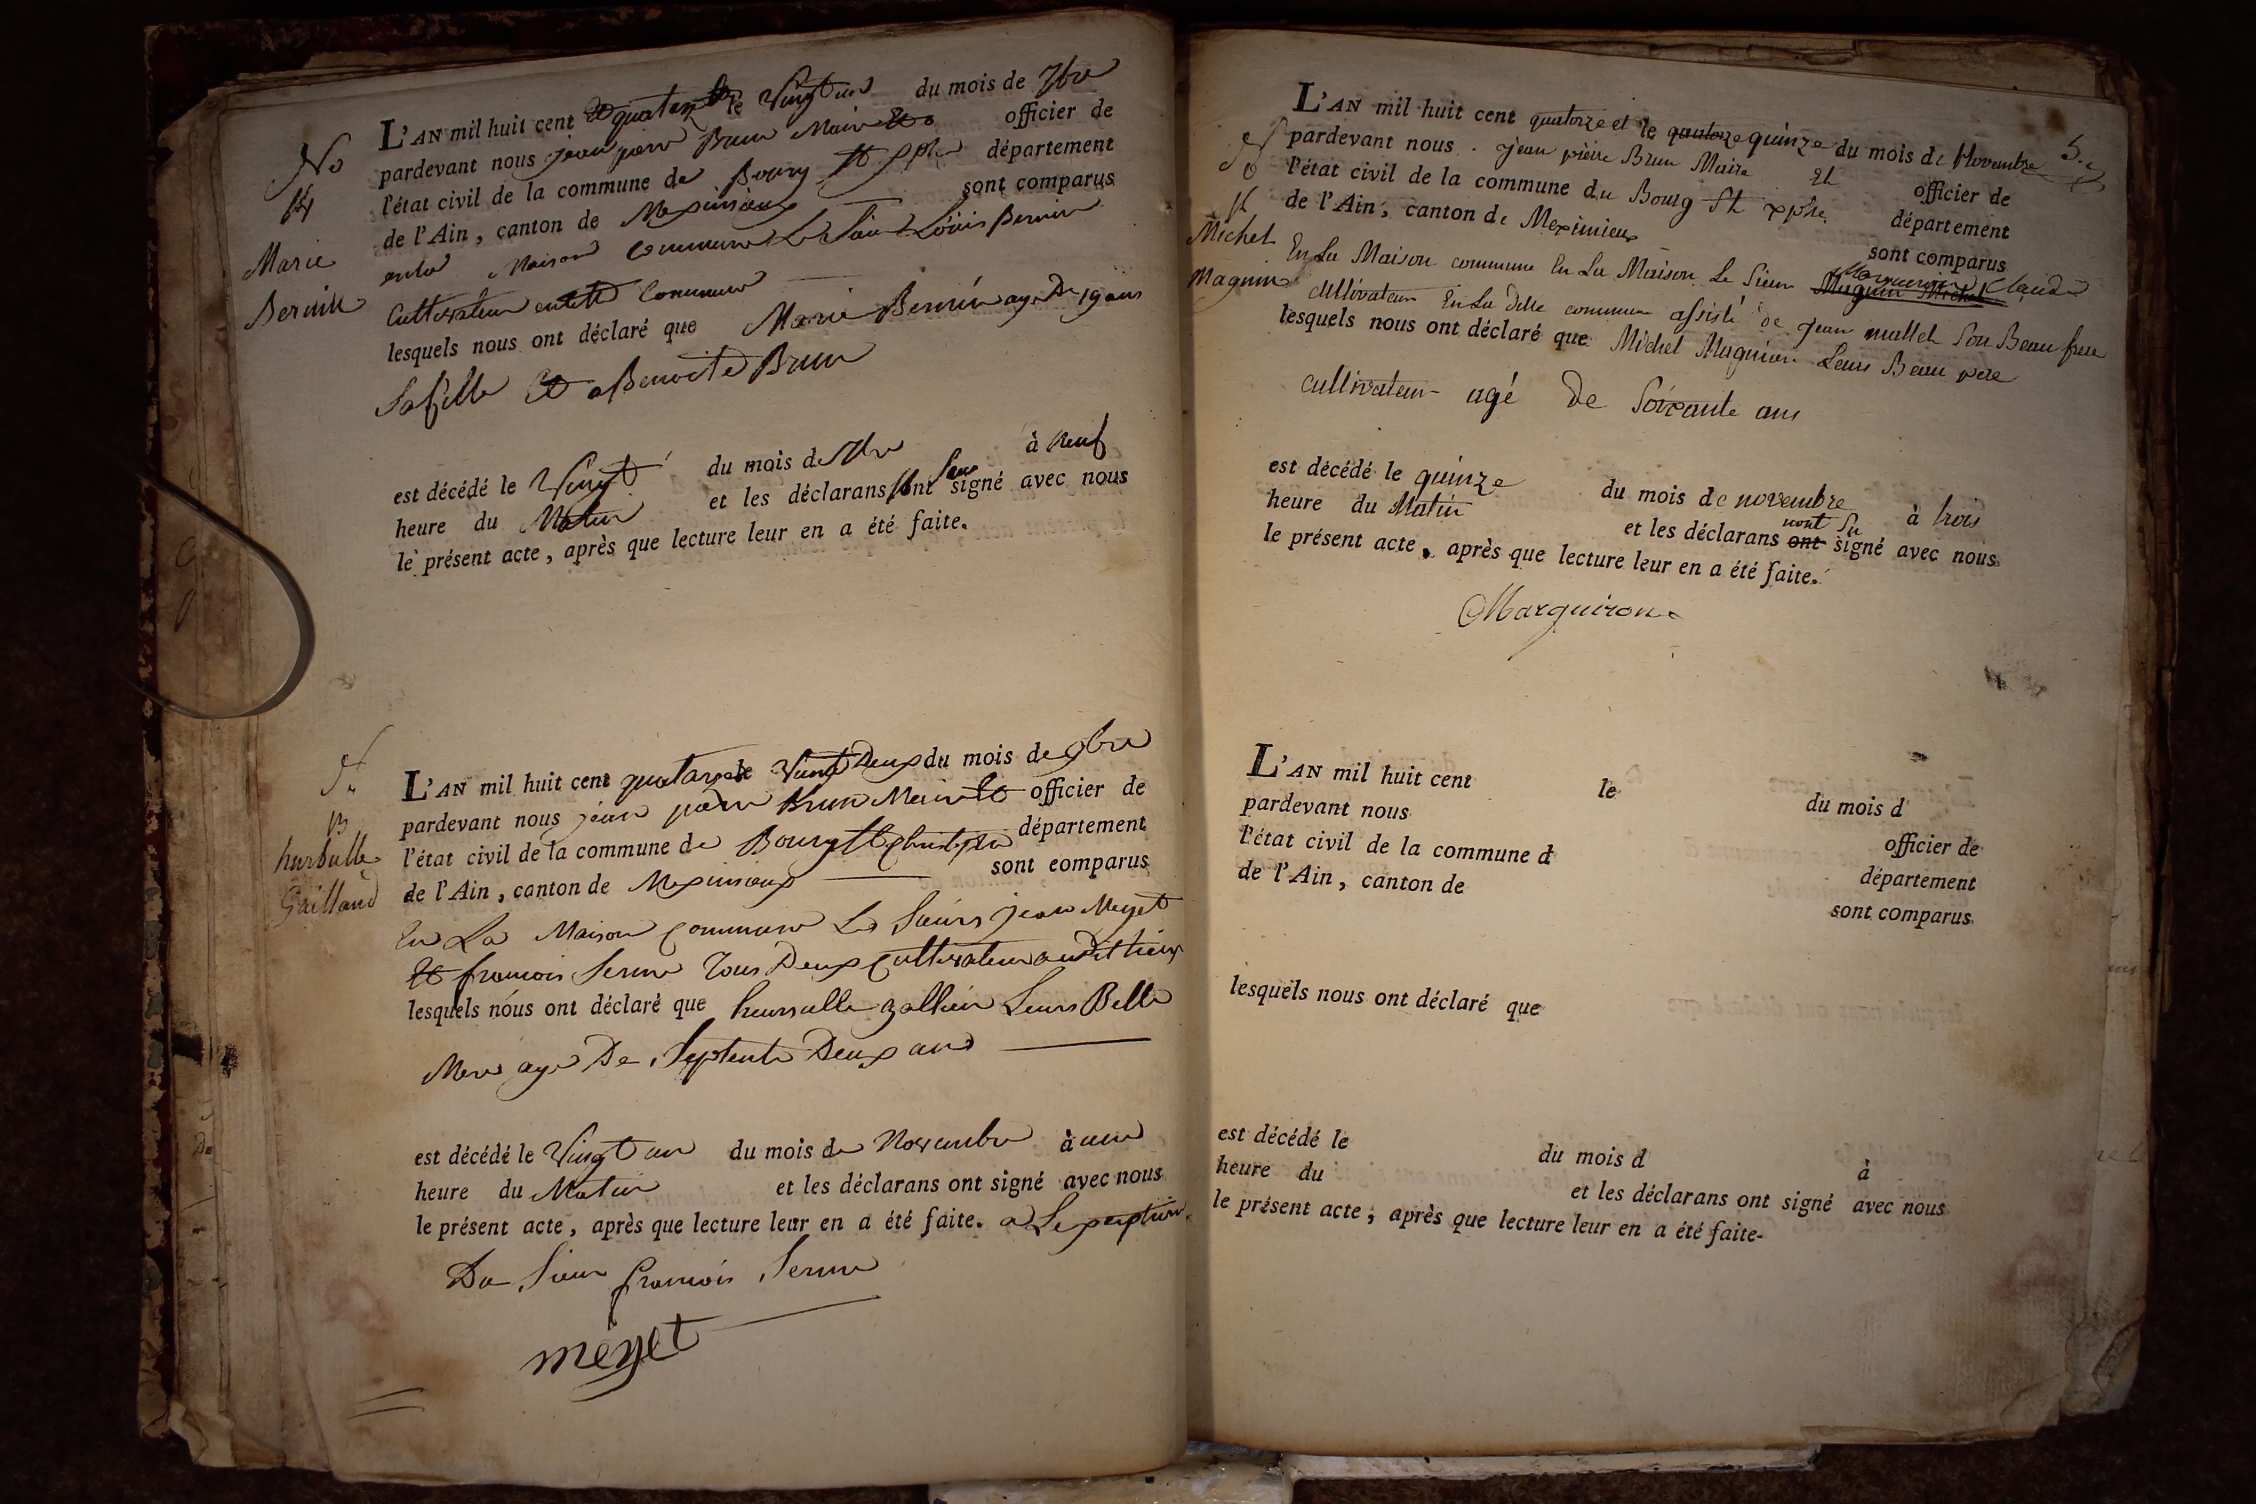 No
14
Marie
Bernin
L'AN mil huit cent quatorze le vingt un du mois de 7bre
pardevant nous jean pierre Brun Maire et officier de
l'état civil de la commune de Bourg St Xphe département
de l'Ain, canton de Meximieux sont comparus
en la Maison commune Le Sieur Louis Bernin
Cultivateur en cette Commune
lesquels nous ont déclaré que Marie Bernin age De 19 ans
Sa fille Et a Benoite Brun
est décédé le Vingt du mois de 7bre à neuf
heure du Matin et les déclarans ont signé avec nous
le présent acte, après que lecture leur en a été faite.
N
15
hursulle
Gailland
L'AN mil huit cent quatorze le Vingt Deux du mois de 9bre
pardevant nous jean pierre Brun Maire Et officier de
l'état civil de la commune de Bourg St Christophe département
de l'Ain, canton de Meximieux sont comparus
En La Maison Commune Le Sieurs jean Meyet
Et francois Serme Tous Deux Cultivateur audit lieux
lesquels nous ont déclaré que hursulle Leurs Belle
Mere age De Septente Deux ans
est décédé le Vingt un du mois de Novembre à une
heure du Matin et les déclarans ont signé avec nous
le présent acte, après que lecture leur en a été faite. a Lexception
De Sieur francois Serme
meyet
5.
N
16
Michel
Magnin
L'AN mil huit cent quatorze et le quatorze quinze du mois de Novembre
pardevant nous. jean pierre Brun Maire Et officier de
l'état civil de la commune du Bourg St Xphe département
de l'Ain, canton de Meximieux sont comparus
En La Maison commune En La Maison Le Sieur Magnin Michel Marguiron Claude
cultivateur En La ditte commune assisté de jean mallet Son Beau frere
lesquels nous ont déclaré que Michel Magnin Leurs Beau pere
cultivateur agé De Soixante ans
est décédé le quinze du mois de novembre à trois
heure du Matin et les déclarans ont nont Su signé avec nous
le présent acte, après que lecture leur en a été faite.
Marguiron
L'AN mil huit cent le du mois d
pardevant nous officier de
l'état civil de la commune d département
de l'Ain, canton de sont comparus
lesquels nous ont déclaré que
est décédé le du mois d à
heure du et les déclarans ont signé avec nous
le présent acte, après que lecture leur en a été faite.